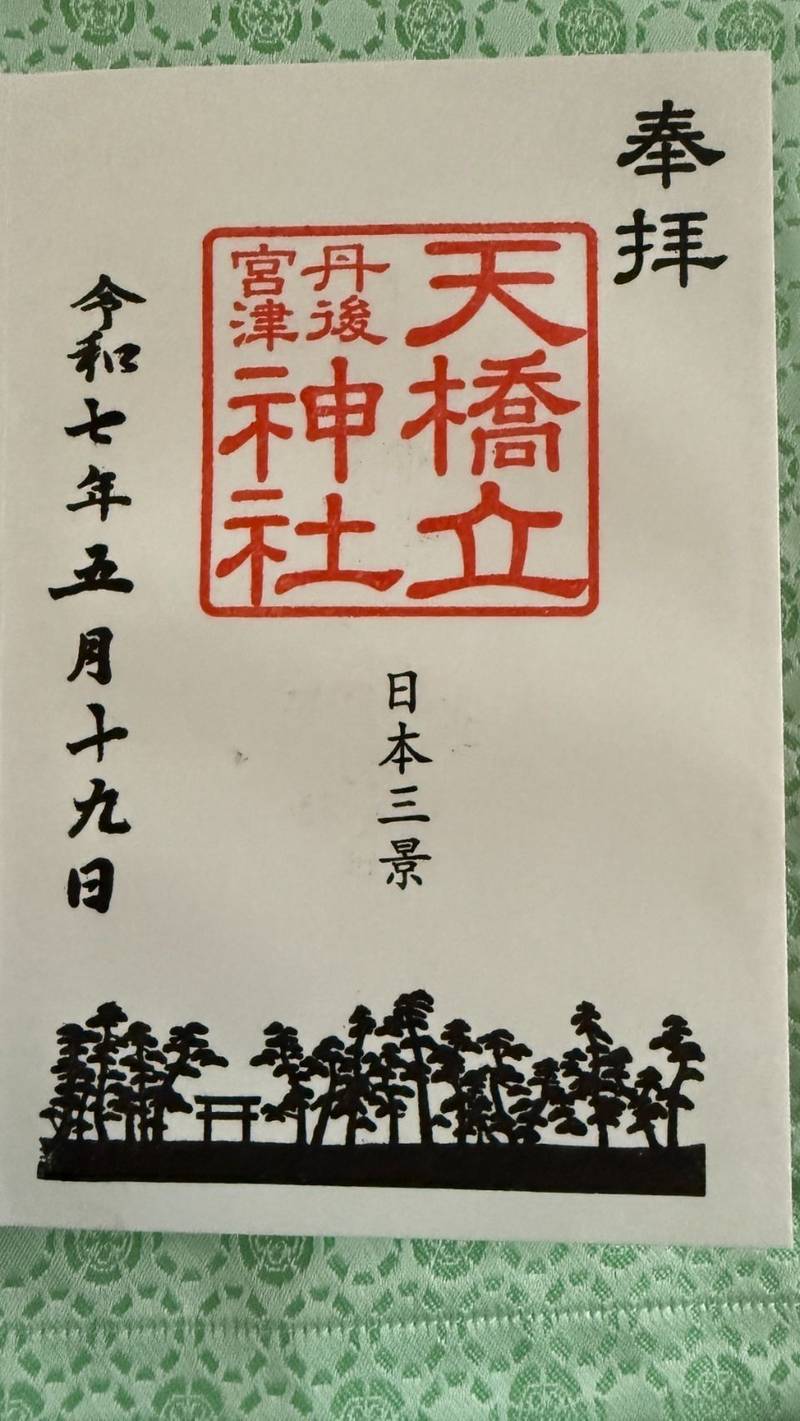 奉拝
天橋立
丹後
宮津
神社
日本三景
令和七年五月十九日